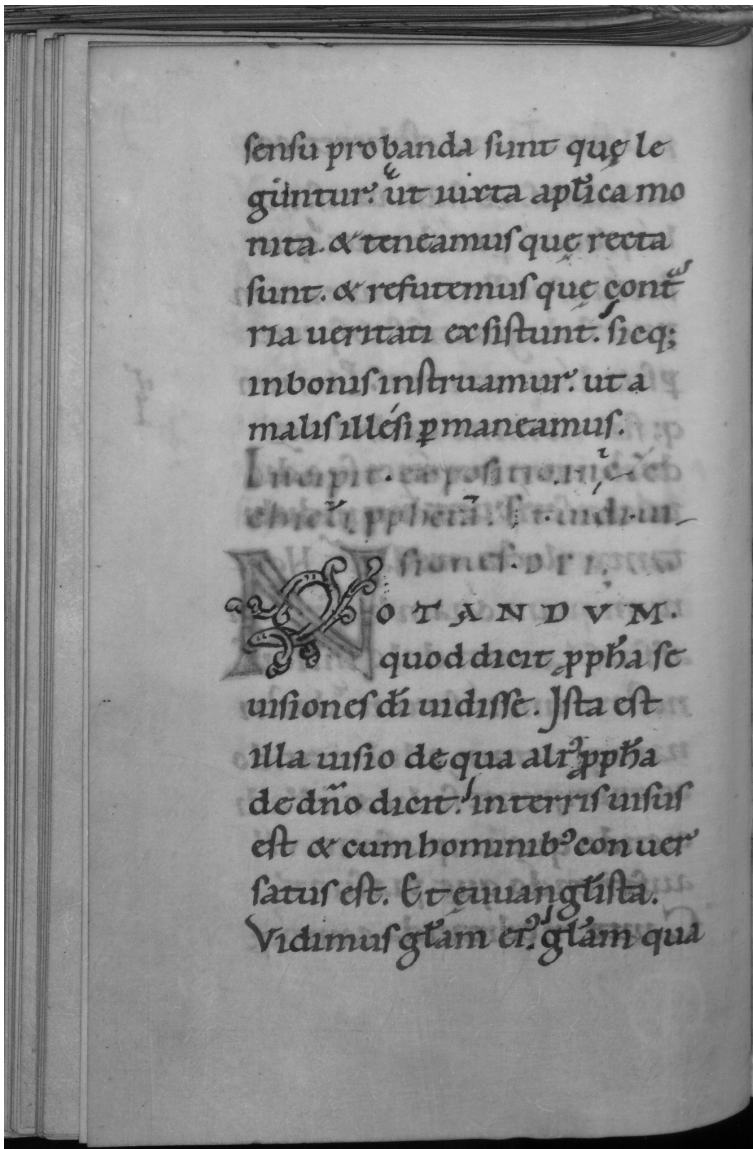 sensu probanda sunt quę le
guntur. ut iuxta apl̃ica mo
nita. & teneamus quę recta
sunt. & refutemus quę cont
ria ueritati exsistunt. sicq;
inbonis instruamur. ut a
malis illęsi ꝑmaneamus.
Incipit expositio
N
OTANDVM.
quod dicit ꝓph̃a se
uisiones dĩ uidisse. Ista est
illa uisio de qua aliꝰ ꝓph̃a
de dño dicit. interris uisus
est & cum hominibꝰ conuer
satus est. Et ęuuangl̃ista.
Vidimus gl̃am eiꝰ. gl̃am qua